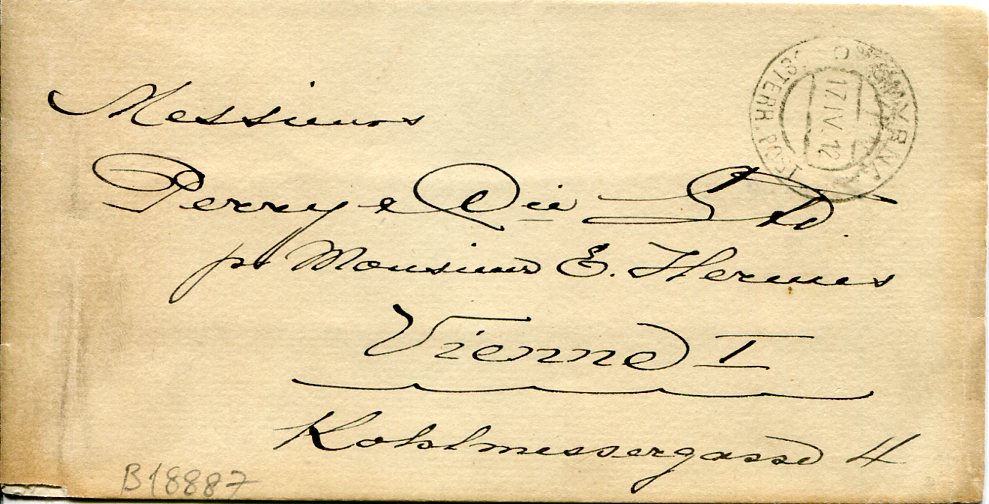 Messieurs
Perry & Cie Ltd.
pr Monsieur E. Hermes
Vienne I
Kohlmessergasse 4
SMYRNA
17 IV 12
ÖSTERR. POST
B18887